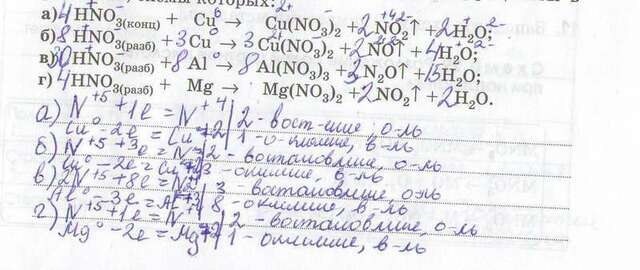 а) 4HNO₃(конц) + Cu → Cu(NO₃)₂ + 2NO₂↑ + 2H₂O;
б) 8HNO₃(разб) + 3Cu → 3Cu(NO₃)₂ + 2NO↑ + 4H₂O;
в) 30HNO₃(разб) + 8Al → 8Al(NO₃)₃ + 3N₂O↑ + 15H₂O;
г) 4HNO₃(разб) + Mg → Mg(NO₃)₂ + 2NO₂↑ + 2H₂O.
а) N⁺⁵ + 1e = N⁺⁴ | 2 - вост-ение, о-ль
Cu⁰ - 2e = Cu⁺² | 1 - о-ние, в-ль
б) N⁺⁵ + 3e = N⁺² | 2 - востановление, о-ль
Cu⁰ - 2e = Cu⁺² | 3 - окисление, в-ль
в) 2N⁺⁵ + 8e = | 3 - востановление, о-ль
Al⁰ - 3e = Al⁺³ | 8 - окисление, в-ль
г) N⁺⁵ + 1e = N⁺⁴ | 2 - востановление, о-ль
Mg⁰ - 2e = Mg⁺² | 1 - окисление, в-ль